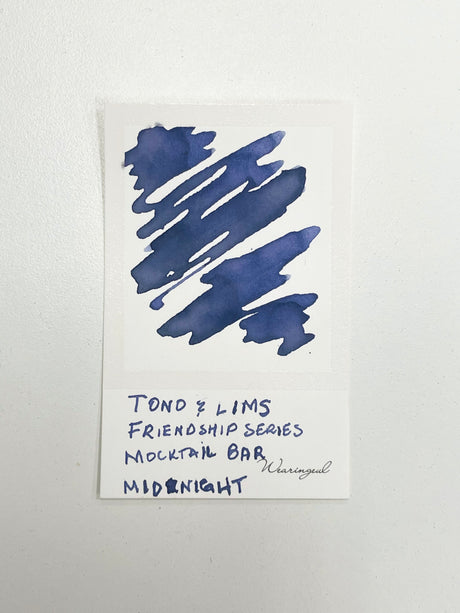 TONO & LIMS
FRIENDSHIP SERIES
MOCKTAIL BAR
Wearingeul
MIDNIGHT